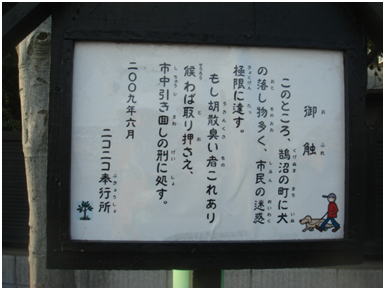 御触
このところ、鵠沼の町に犬
の落し物多く、市民の迷惑
極限に達す。
もし胡散臭い者これあり
候わば取り押さえ、
市中引き回しの刑に処す。
二〇〇九年六月
ニコニコ奉行所